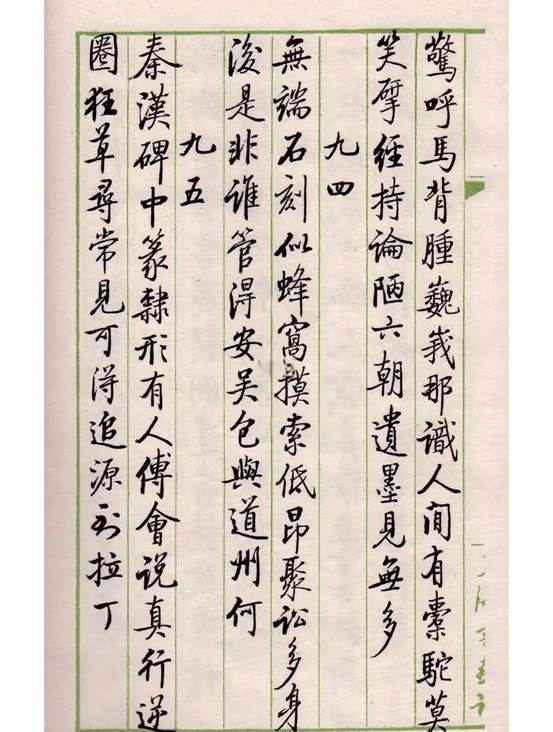 驚呼馬背腫巍峩那識人間有橐駝莫
笑擘經持論陋六朝遺墨見無多
九四
無端石刻似蜂窩摸索低昂聚訟多身
後是非誰管得安吴包與道州何
九五
秦漢碑中篆隸形有人傅會說真行逆
圈狂草尋常見可得追源到拉丁